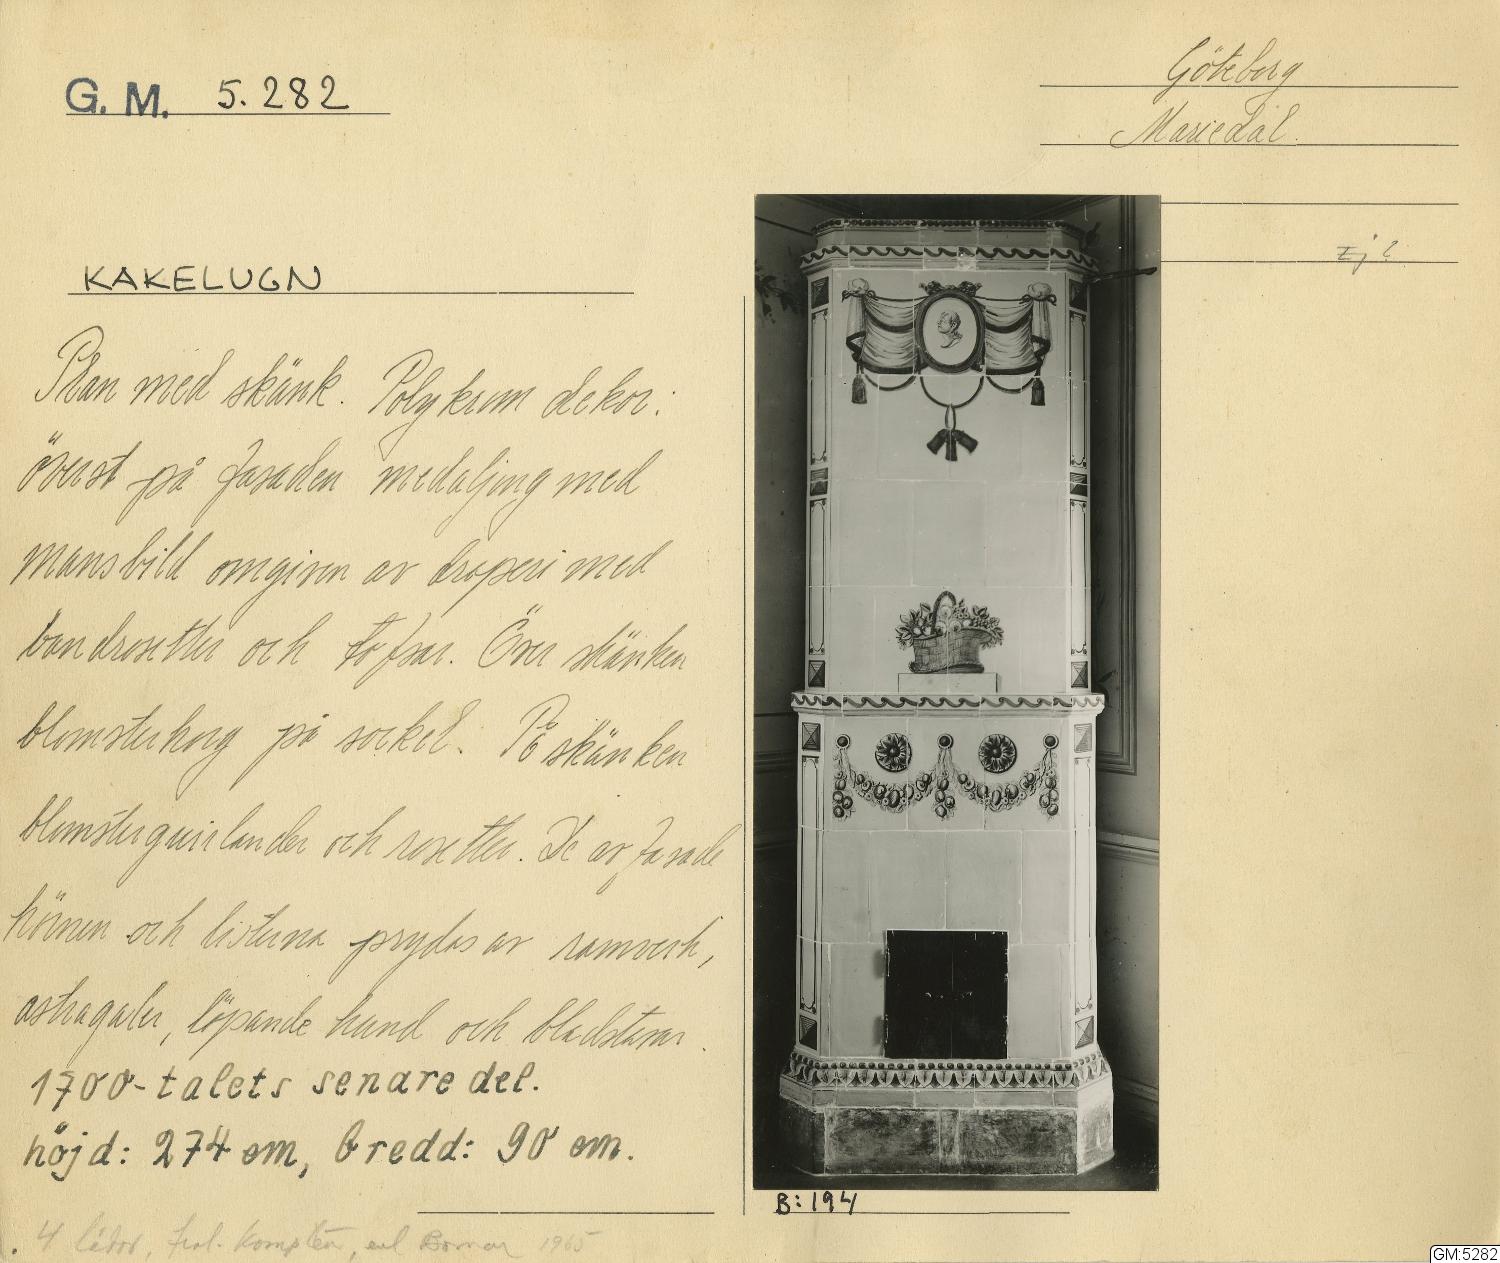 G. M. 5.282
Göteborg
Mariedal.
KAKELUGN
Plan med skänk. Polykrom dekor:
överst på fasaden medaljong med
mansbild omgiven av draperi med
bandrosetter och tofsar. Över skänken
blomsterkorg på sockel. På skänken
blomsterguirlander och rosetter. De av fasade
hörnen och listerna prydas av ramverk,
astragaler, löpande hund och bladstavar.
1700-talets senare del.
höjd: 274 cm, bredd: 90 cm.
B: 194
4 lådor, komplett, enl 1965
GM:5282